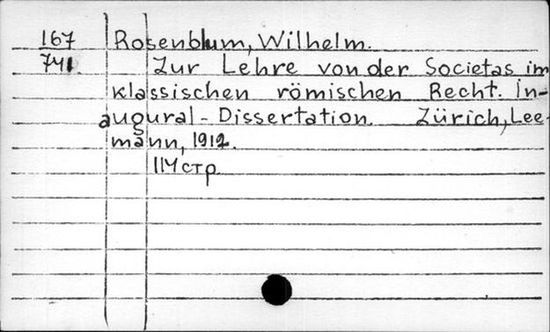 167 Rosenblum, Wilhelm.
741 Zur Lehre von der Societas im
klassischen römischen Recht. In-
augural-Dissertation. Zürich, Lee-
mann, 1912.
стр.